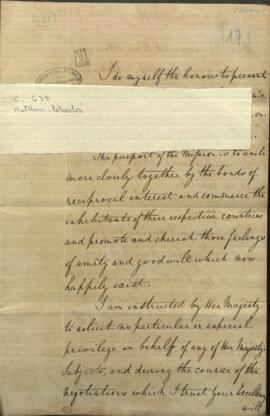 [17]
I do myself the honour to present
C. GDH
The purport of the Mission is to unite
more closely together by the bonds of
reciprocal interest and commerce the
inhabitants of their respective countries
and promote and cherish those feelings
of amity and good will which now
happily exist.
I am instructed by Her Majesty
to solicit no particular or especial
privilege in behalf of any of Her Majesty's
Subjects, and during the course of the
negotiations which I trust Your Excellency
will